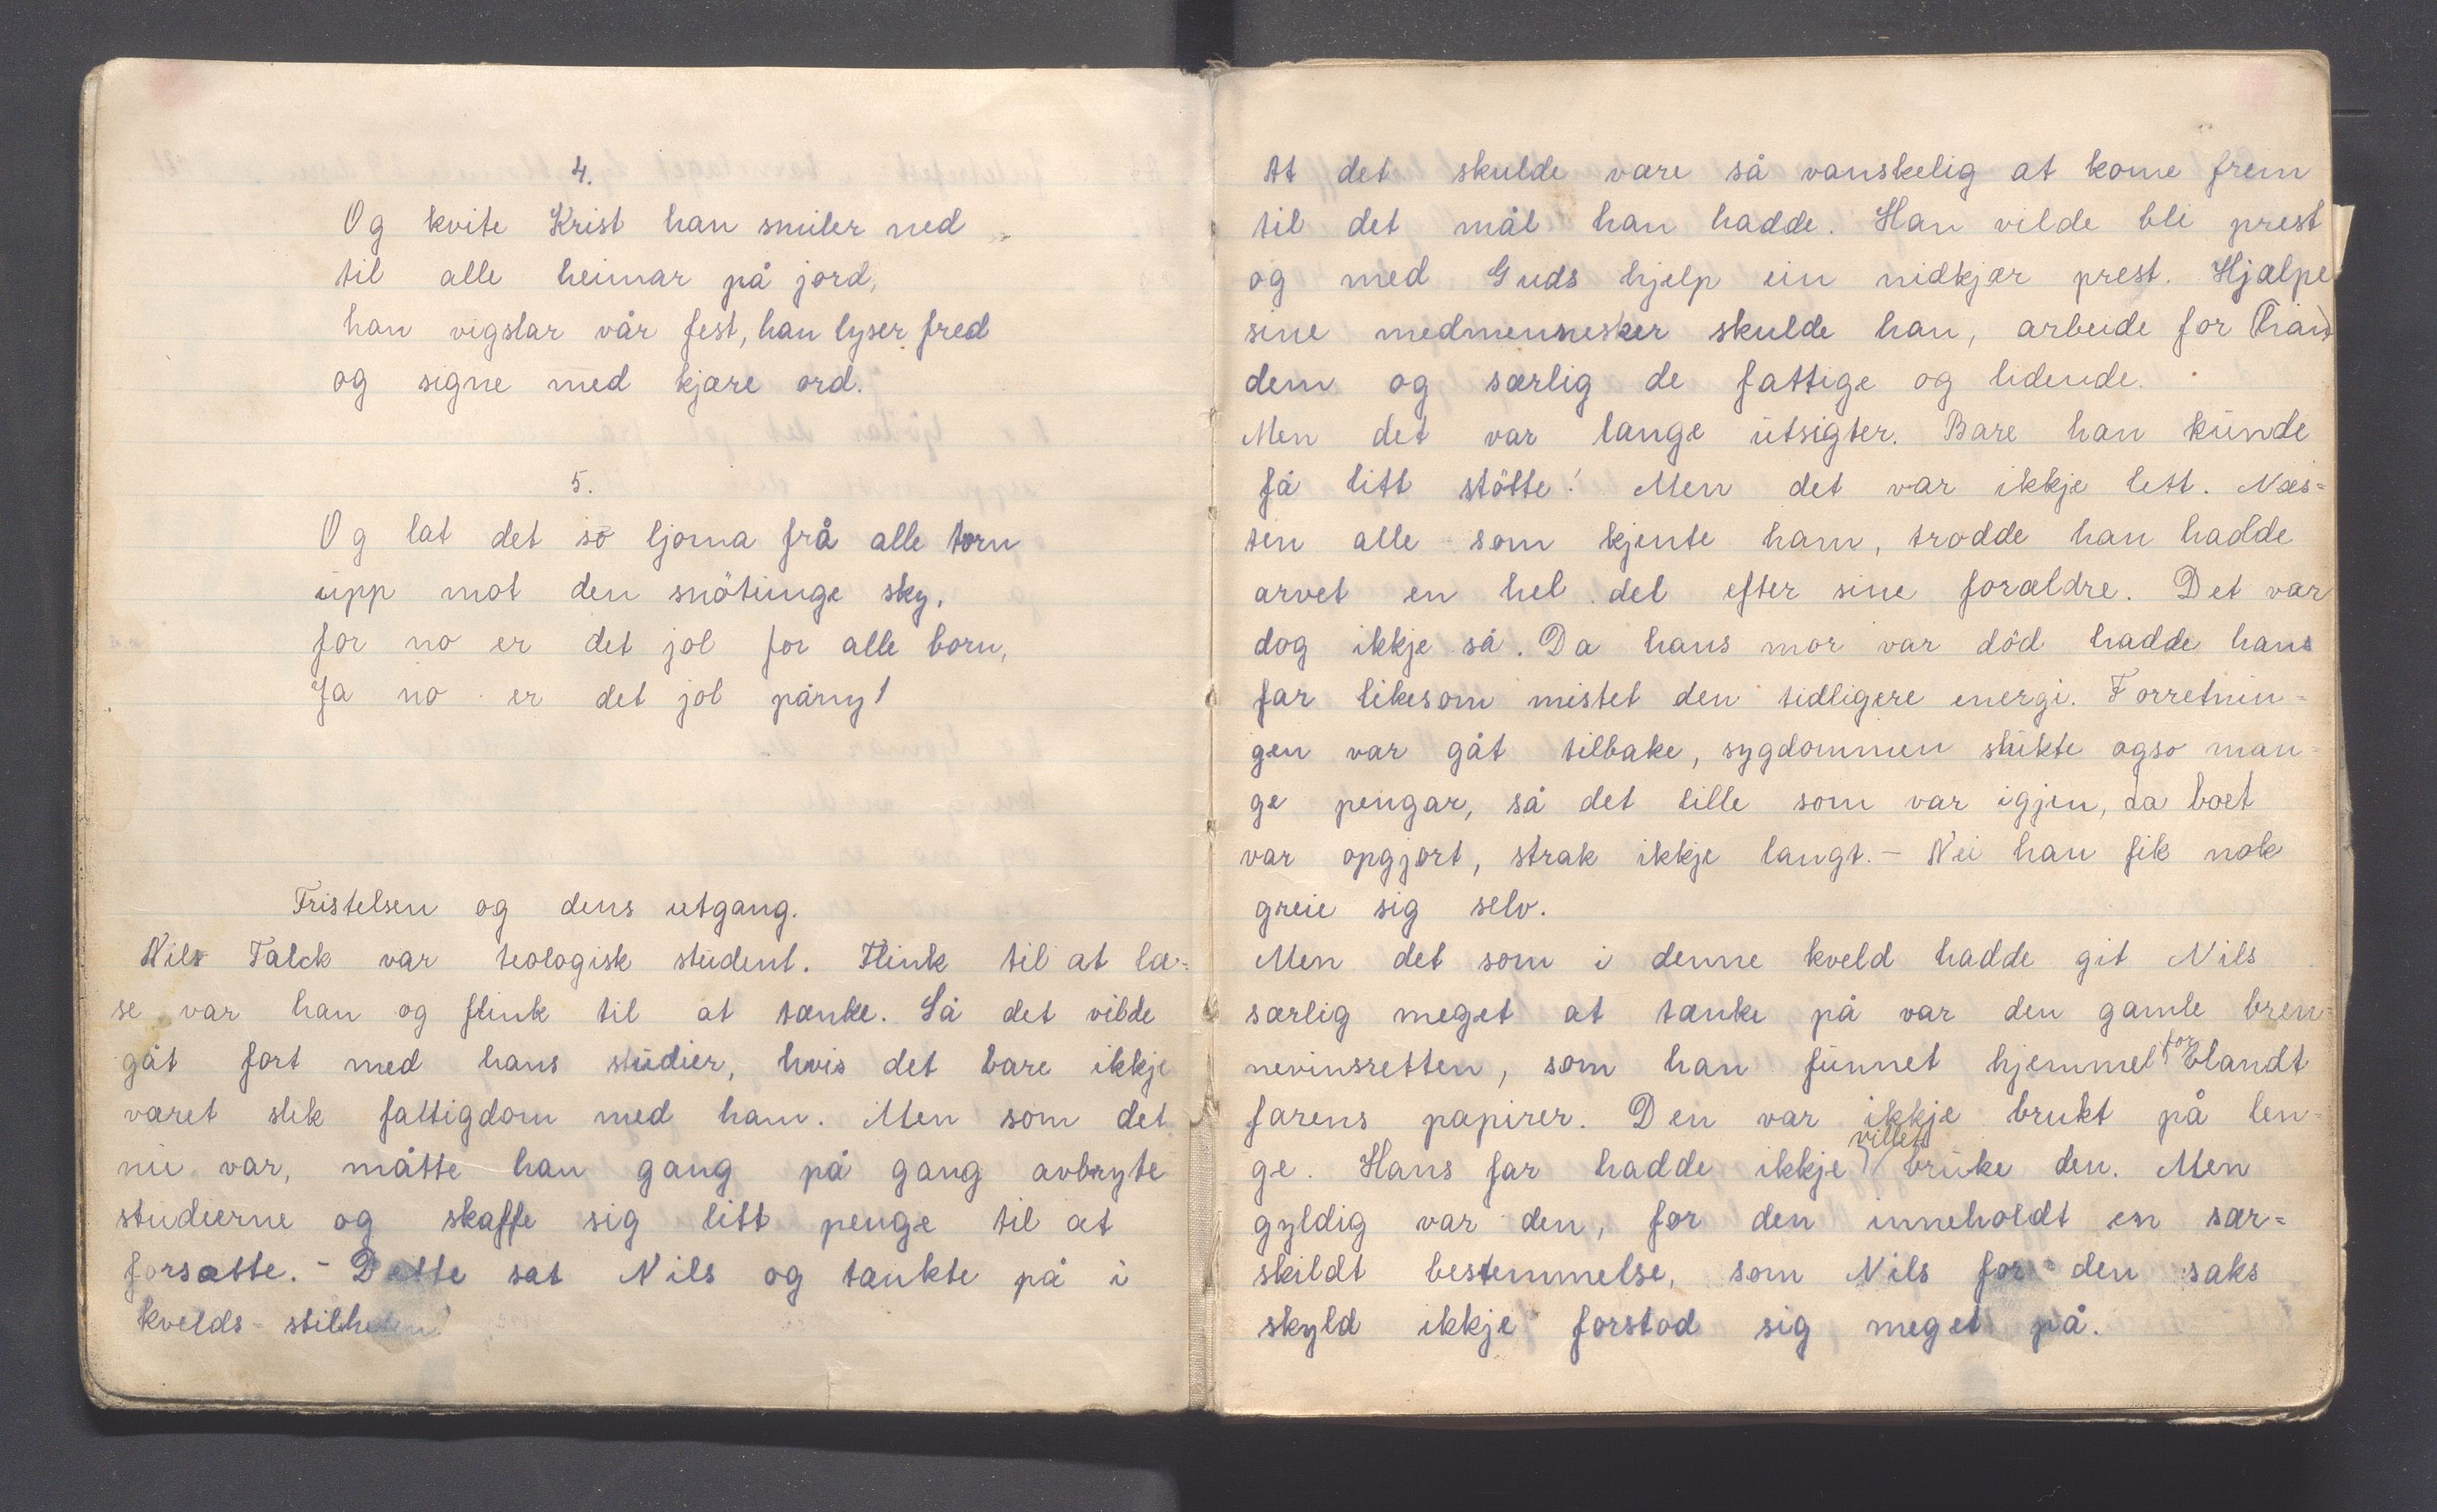 4.
Og kvite Krist han smiler ned
til alle heimar på jord,
han vigslar vår fest, han lyser fred
og signe med kjære ord.
5.
Og lat det so ljoma frå alle torn
upp mot den snötunge sky,
for no er det jol for alle born,
Ja no er det jol påny!
Fristelsen og dens utgang.
Nils Falck var teologisk student. Flink til at læ-
se var han og flink til at tænke. Så det vilde
gåt fort med hans studier, hvis det bare ikkje
været slik fattigdom med ham. Men som det
nu var, måtte han gang på gang avbryte
studierne og skaffe sig litt penge til at
forsætte. - Dette sat Nils og tænkte på i
kvelds-stilheten!
At det skulde være så vanskelig at kome frem
til det mål han hadde. Han vilde bli prest
og med Guds hjelp ein nidkjær prest. Hjælpe
sine medmennesker skulde han, arbeide for (han)
dem og særlig de fattige og lidende.
Men det var lange utsigter. Bare han kunde
få litt stötte! Men det var ikkje lett. Næs=
ten alle som kjente ham, trodde han hadde
arvet en hel del efter sine forældre. Det var
dog ikkje så. Da hans mor var död hadde hans
far likesom mistet den tidligere energi. Forretnin=
gen var gåt tilbake, sygdommen slukte også man=
ge pengar, så det lille som var igjen, da boet
var opgjort, strak ikkje langt. - Nei han fik nok
greie sig selv.
Men det som i denne kveld hadde git Nils
særlig meget at tænke på var den gamle bren=
nevinsretten, som han funnet hjemmel for blandt
farens papirer. Den var ikkje brukt på len=
ge. Hans far hadde ikkje villet bruke den. Men
gyldig var den, for den inneholdt en sær=
skildt bestemmelse, som Nils for den saks
skyld ikkje forstod sig meget på.